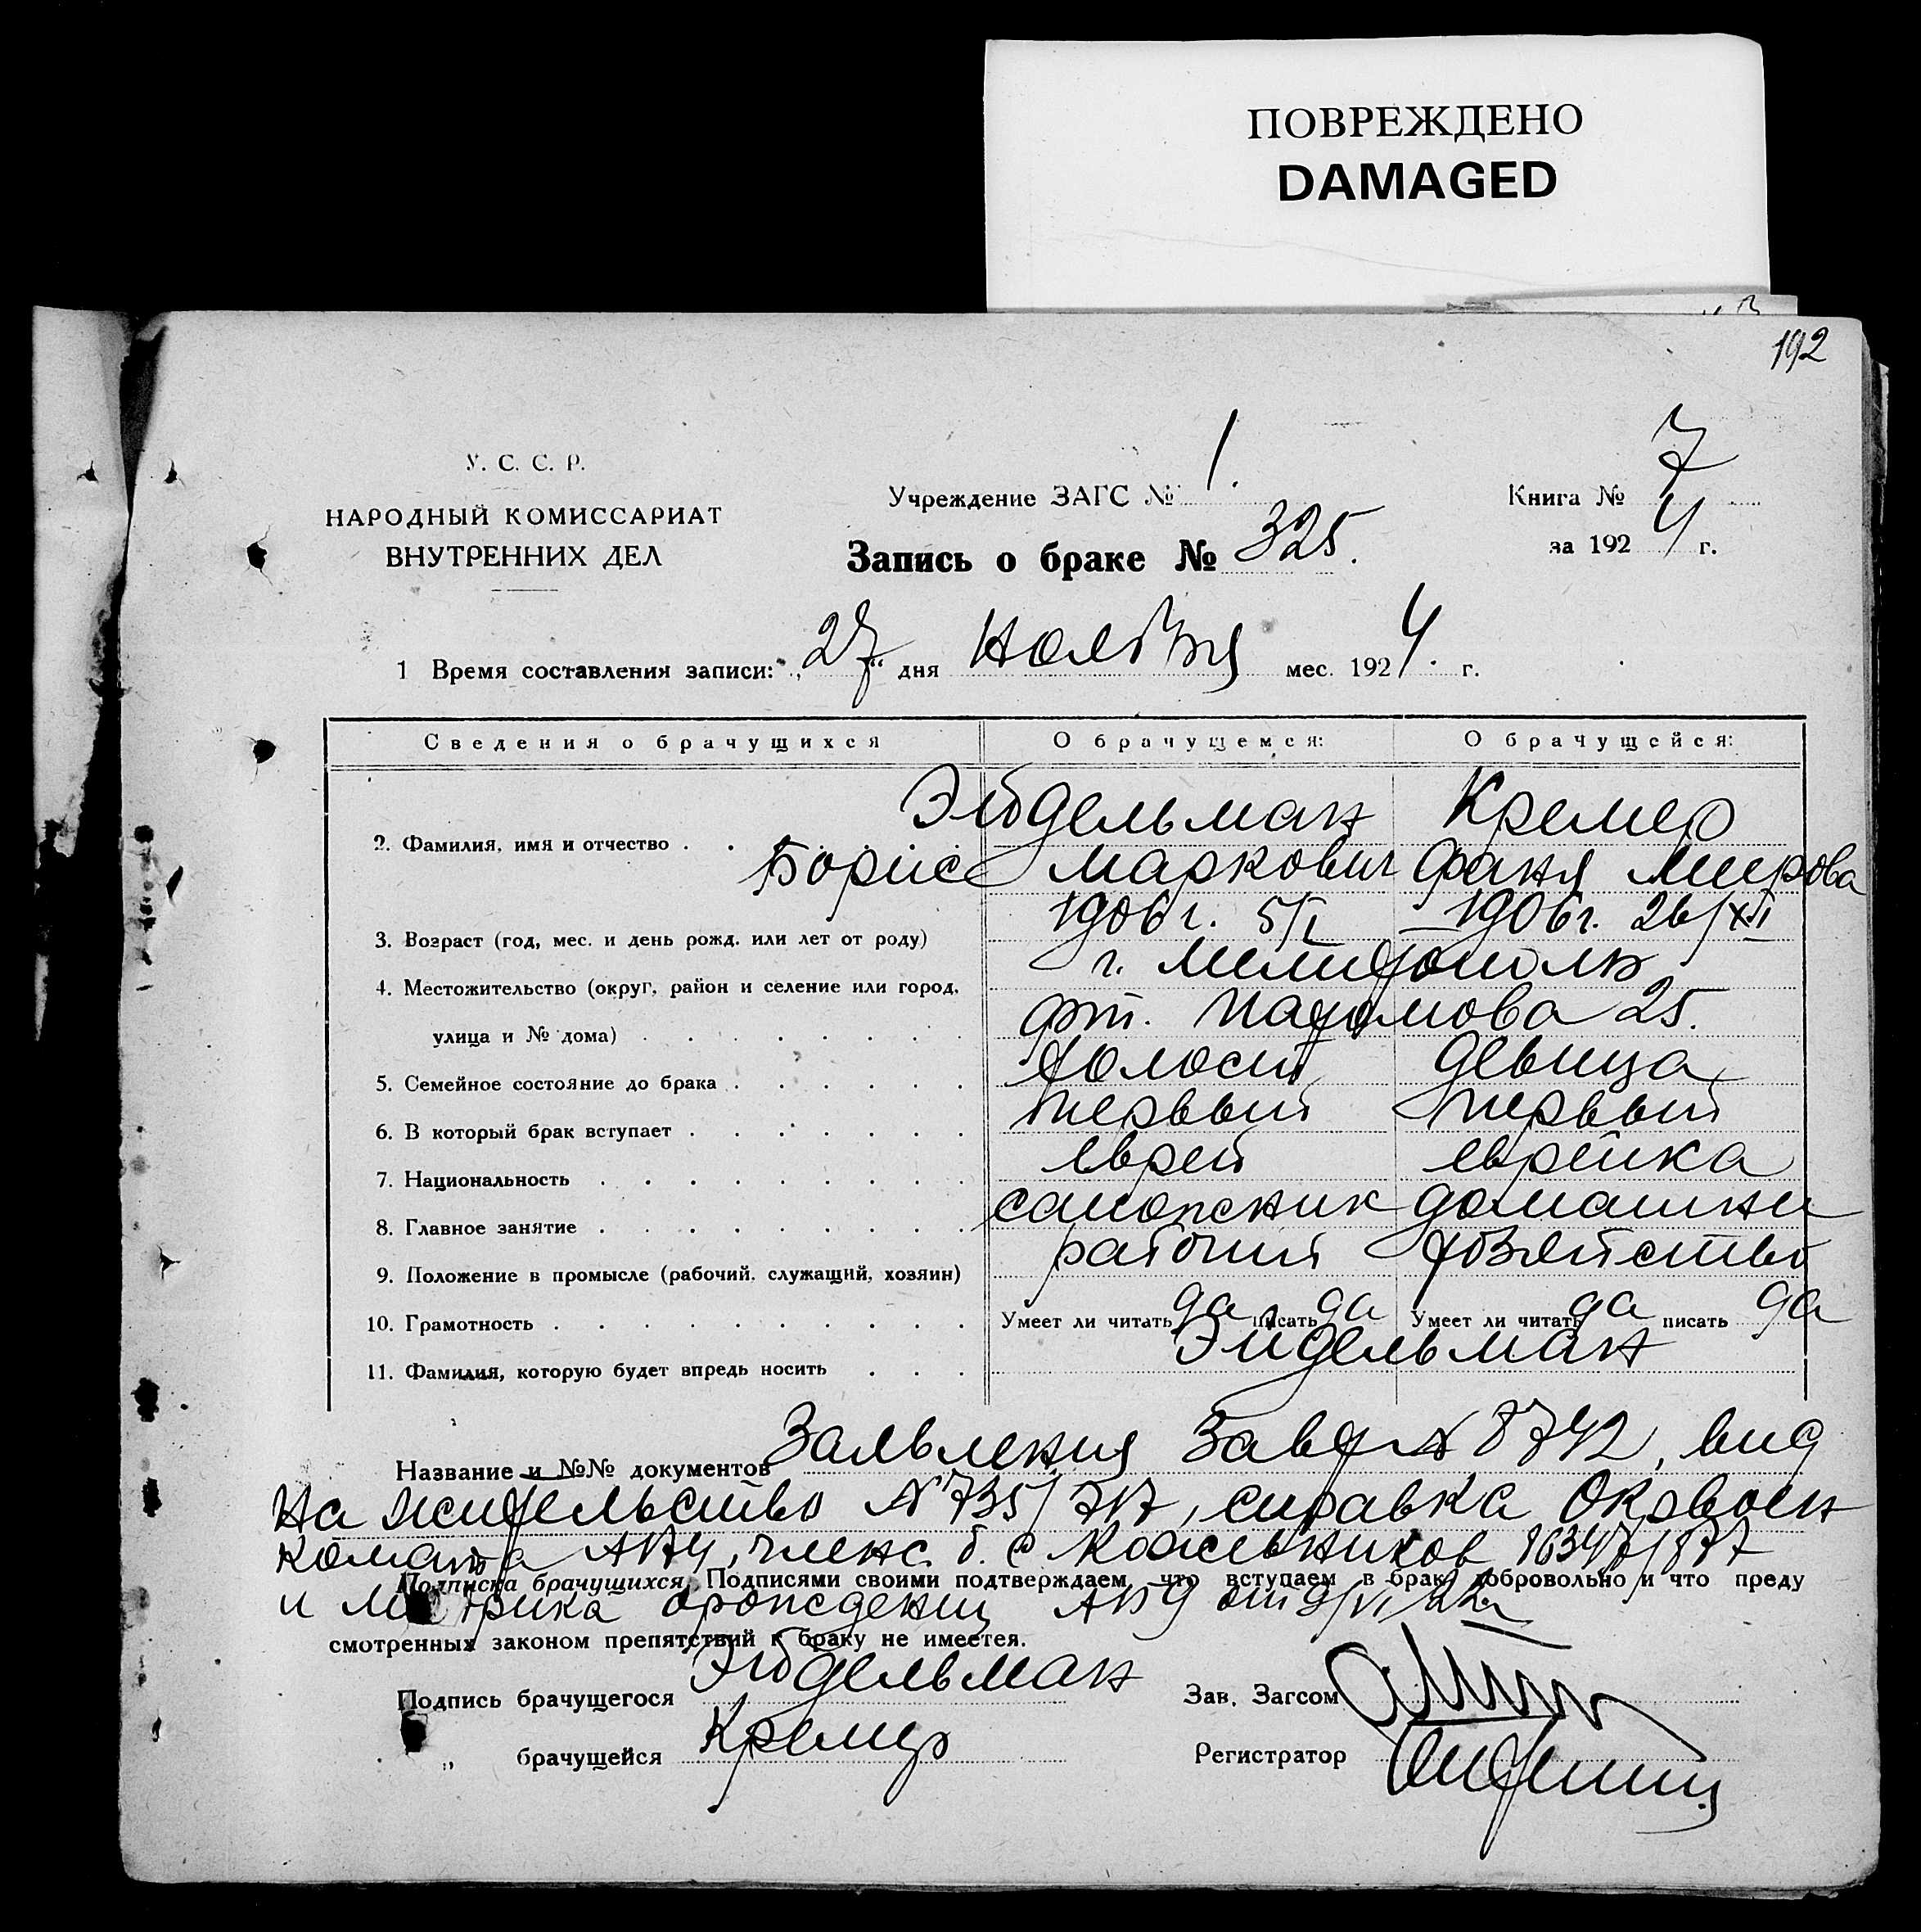 ПОВРЕЖДЕНО
DAMAGED
192
У. С. С. Р.
НАРОДНЫЙ КОМИССАРИАТ
ВНУТРЕННИХ ДЕЛ
Учреждение ЗАГС № 1.
Книга № 7
за 1924 г.
Запись о браке № 325.
1 Время составления записи: „27“ дня Ноября мес. 1924. г.
Сведения о брачущихся О брачущемся: О брачущейся:
2. Фамилия, имя и отчество Эйдельман Борис Маркович Кремер Фаня Меерова
3. Возраст (год, мес. и день рожд. или лет от роду) 1906 г. 5/I 1906 г. 26/XII
4. Местожительство (округ, район и селение или город, г. Мелитополь
улица и № дома) 25.
5. Семейное состояние до брака холост девица
6. В который брак вступает первый первый
7. Национальность еврей еврейка
8. Главное занятие сапожник домашнее
9. Положение в промысле (рабочий, служащий, хозяин) рабочий хозяйство
10. Грамотность Умеет ли читать да писать да Умеет ли читать да писать да
11. Фамилия, которую будет впредь носить Эйдельман
Название и №№ документов Заявления № 8742, вид
на жительство № 735/717, справка Окрвоен
комата б. с
Подписка брачущихся. Подписями своими подтверждаем, что вступаем в брак добровольно и что преду
и
смотренных законом препятствий к браку не имеется.
Подпись брачущегося Эйдельман
Зав. Загсом
„ брачущейся Кремер
Регистратор